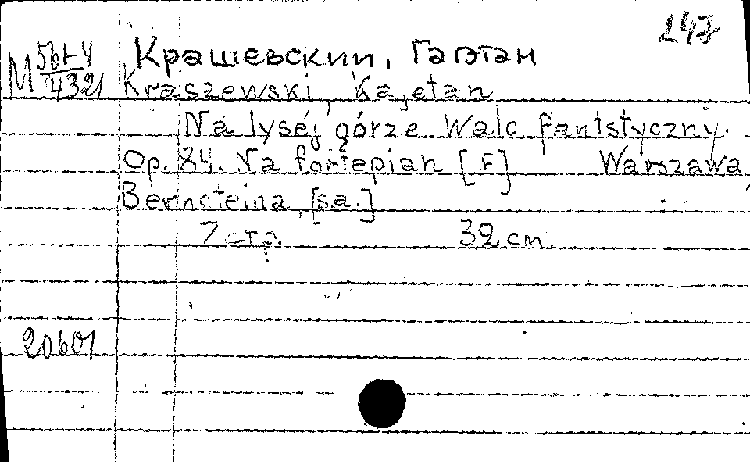 247
M 561-4/4321
Крашевский, Гаэтан
Kraszewski, Kajetan
Na łyséj górze. Walc fantstyczny.
Op. 84. Na fortepian [F] Warszawa,
Bernsteina, [s.a.]
7 стр. 32 cm.
20601